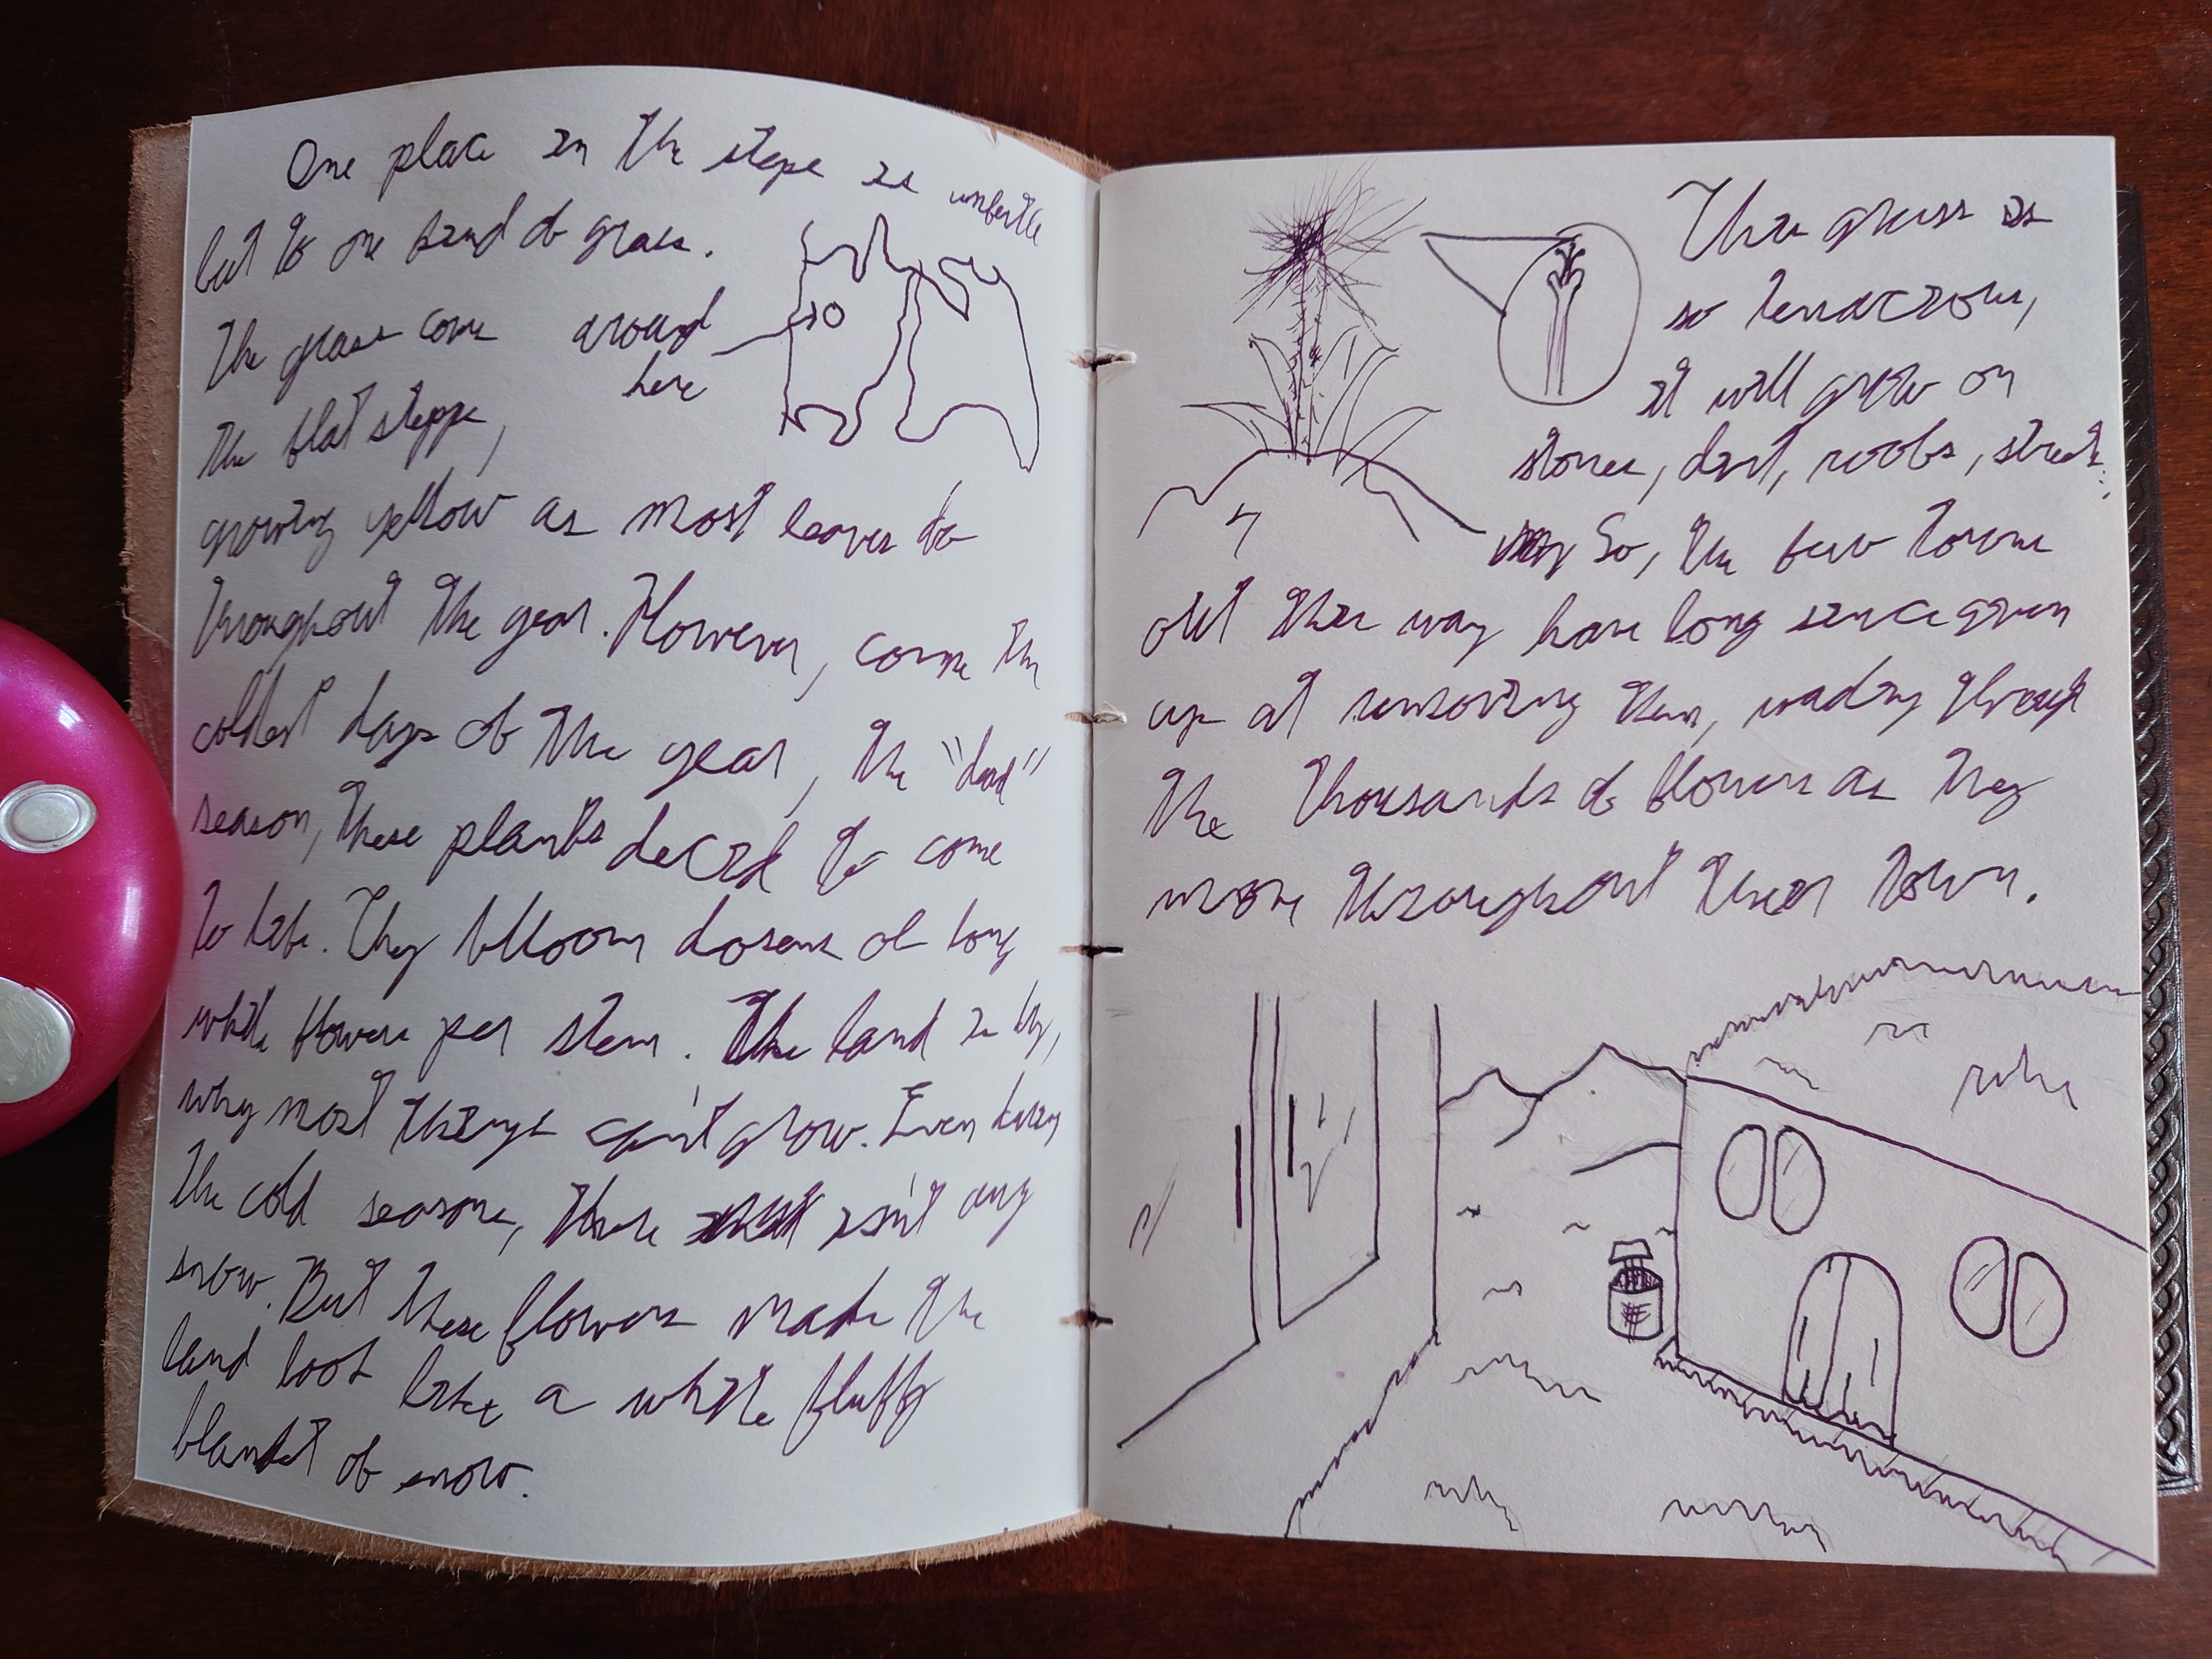 One place in the steppe is unfertile
but to one kind of grass.
The grass come
around
here
the flat steppe,
growing yellow as most leaves do
throughout the year. However, come the
coldest days of the year, the "dead"
season, these plants decide to come
to life. They bloom dozens of long
white flowers per stem. The land is dry,
why most things can't grow. Even during
the cold seasons, there isn't any
snow. But these flowers made the
land look like a white fluffy
blanket of snow.
This grass is
so tenacious,
it will grow on
stones, dirt, roofs, streets.
So, the few towns
out this way have long since given
up at removing them, wading through
the thousands of flowers as they
move throughout their town.